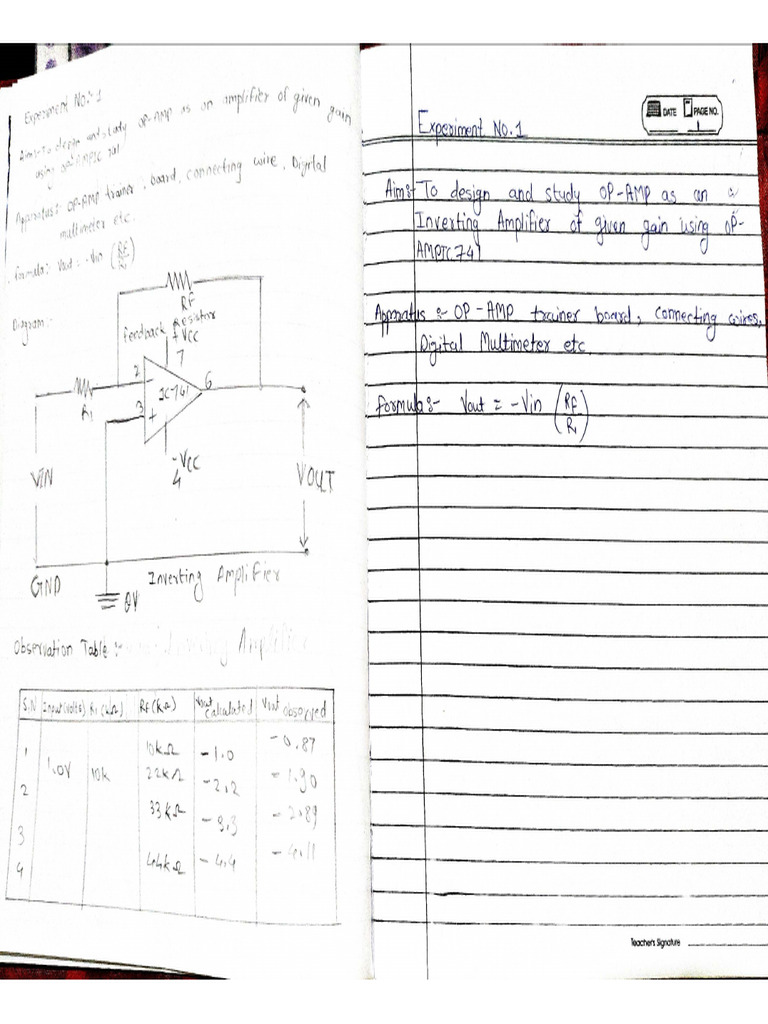 Experiment No:-1
Aim:- To design and study OP-AMP as an amplifier of given gain
using OP-AMPIC 741
Apparatus:- OP-AMP trainer board, connecting wire, Digital
multimeter etc.
Formula:- Vout = -Vin (RF/R1)
Diagram:-
RF
Feedback Resistor
+VCC
7
2
-
IC-741
6
R1
3
+
-VCC
4
VIN
VOUT
GND
0V
Inverting Amplifier
Observation Table :- Inverting Amplifier
S.N Input(volts) R1 (kΩ) RF(kΩ) Vout Calculated Vout observed
1 1.0V 10k 10kΩ -1.0 -0.87
2 22kΩ -2.2 -1.90
3 33kΩ -3.3 -2.89
4 44kΩ -4.4 -4.11
DATE PAGE NO.
1
Experiment No.1
Aim:- To design and study OP-AMP as an
Inverting Amplifier of given gain using OP-
AMPIC741
Apparatus :- OP-AMP trainer board, connecting wires,
Digital Multimeter etc
Formula:- Vout = -Vin (RF/R1)
Teacher's Signature